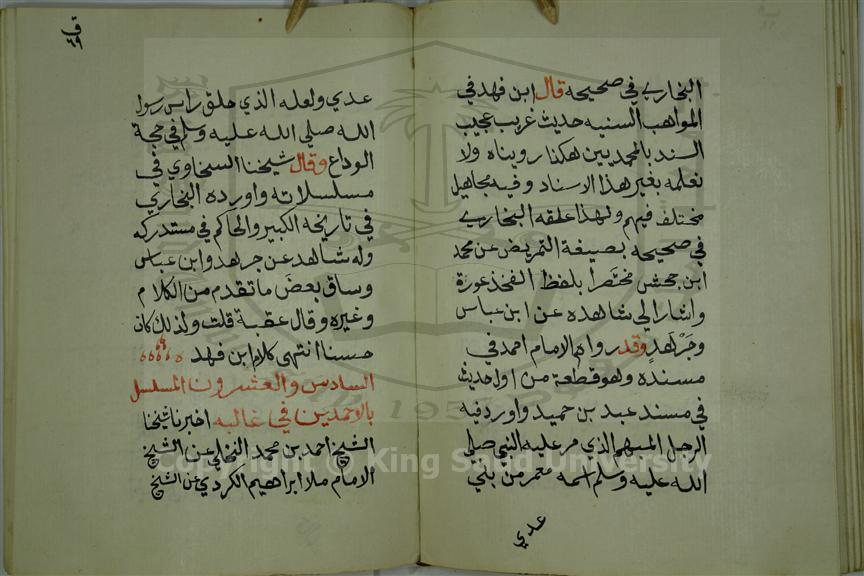 البخاري في صحيحه قال ابن فهد في
المواهب السنيه حديث غريب عجيب
السند بالمحمديين هكذا رويناه ولا
نعلمه بغير هذا الاسناد وفيه مجاهيل
مختلف فيهم ولهذا علقه البخاري
في صحيحه بصيغة التمريض عن محمد
ابن جحش مختصرا بلفظ الفخذ عورة
واشار الي شاهده عن ابن عباس
وجرهد وقد رواه الامام احمد في
مسنده وهو قطعة من اول حديث
في مسند عبد بن حميد واورد فيه
الرجل المبهم الذي مر عليه النبي صلي
الله عليه وسلم اسمه معمر من بني
عدي
ق
٤٩
عدي ولعله الذي حلق راس رسول
الله صلي الله عليه وسلم في حجة
الوداع وقال شيخنا السخاوي في
مسلسلاته واورده البخاري
في تاريخه الكبير والحاكم في مستدركه
وله شاهد عن جرهد وابن عباس
وساق بعض ما تقدم من الكلام
وغيره وقال عقبة قلت ولذلك كان
حسنا انتهى كلام ابن فهد
السادس والعشرون المسلسل
بالاحمديين في غالبه اخبرنا شيخنا
الشيخ احمد بن محمد النخلي عن الشيخ
الامام ملا ابراهيم الكردي عن الشيخ
1957
Copyright © King Saud University